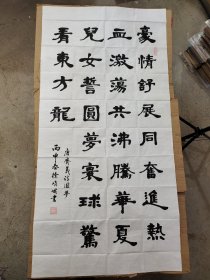 豪情舒展同奮進熱
血激蕩共沸騰華夏
兒女誓圓夢寰球驚
看東方龍
丙申春徐